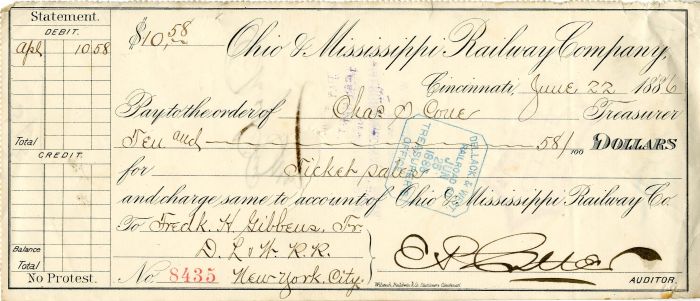 Statement.
DEBIT.
Apl 10.58
Total
CREDIT.
Balance
Total
No Protest.
$10.58
Ohio & Mississippi Railway Company,
Cincinnati, June 22 1886
Pay to the order of Chas M Cone Treasurer
Ten and 58/100 DOLLARS
for Ticket sales
and charge same to account of Ohio & Mississippi Railway Co.
To Fredk. H. Gibbens, Tr.
D. L & W. R. R.
No. 8435 New York City.
AUDITOR.
RAILROAD
JUN 25 1886
TREASURER'S
OFFICE